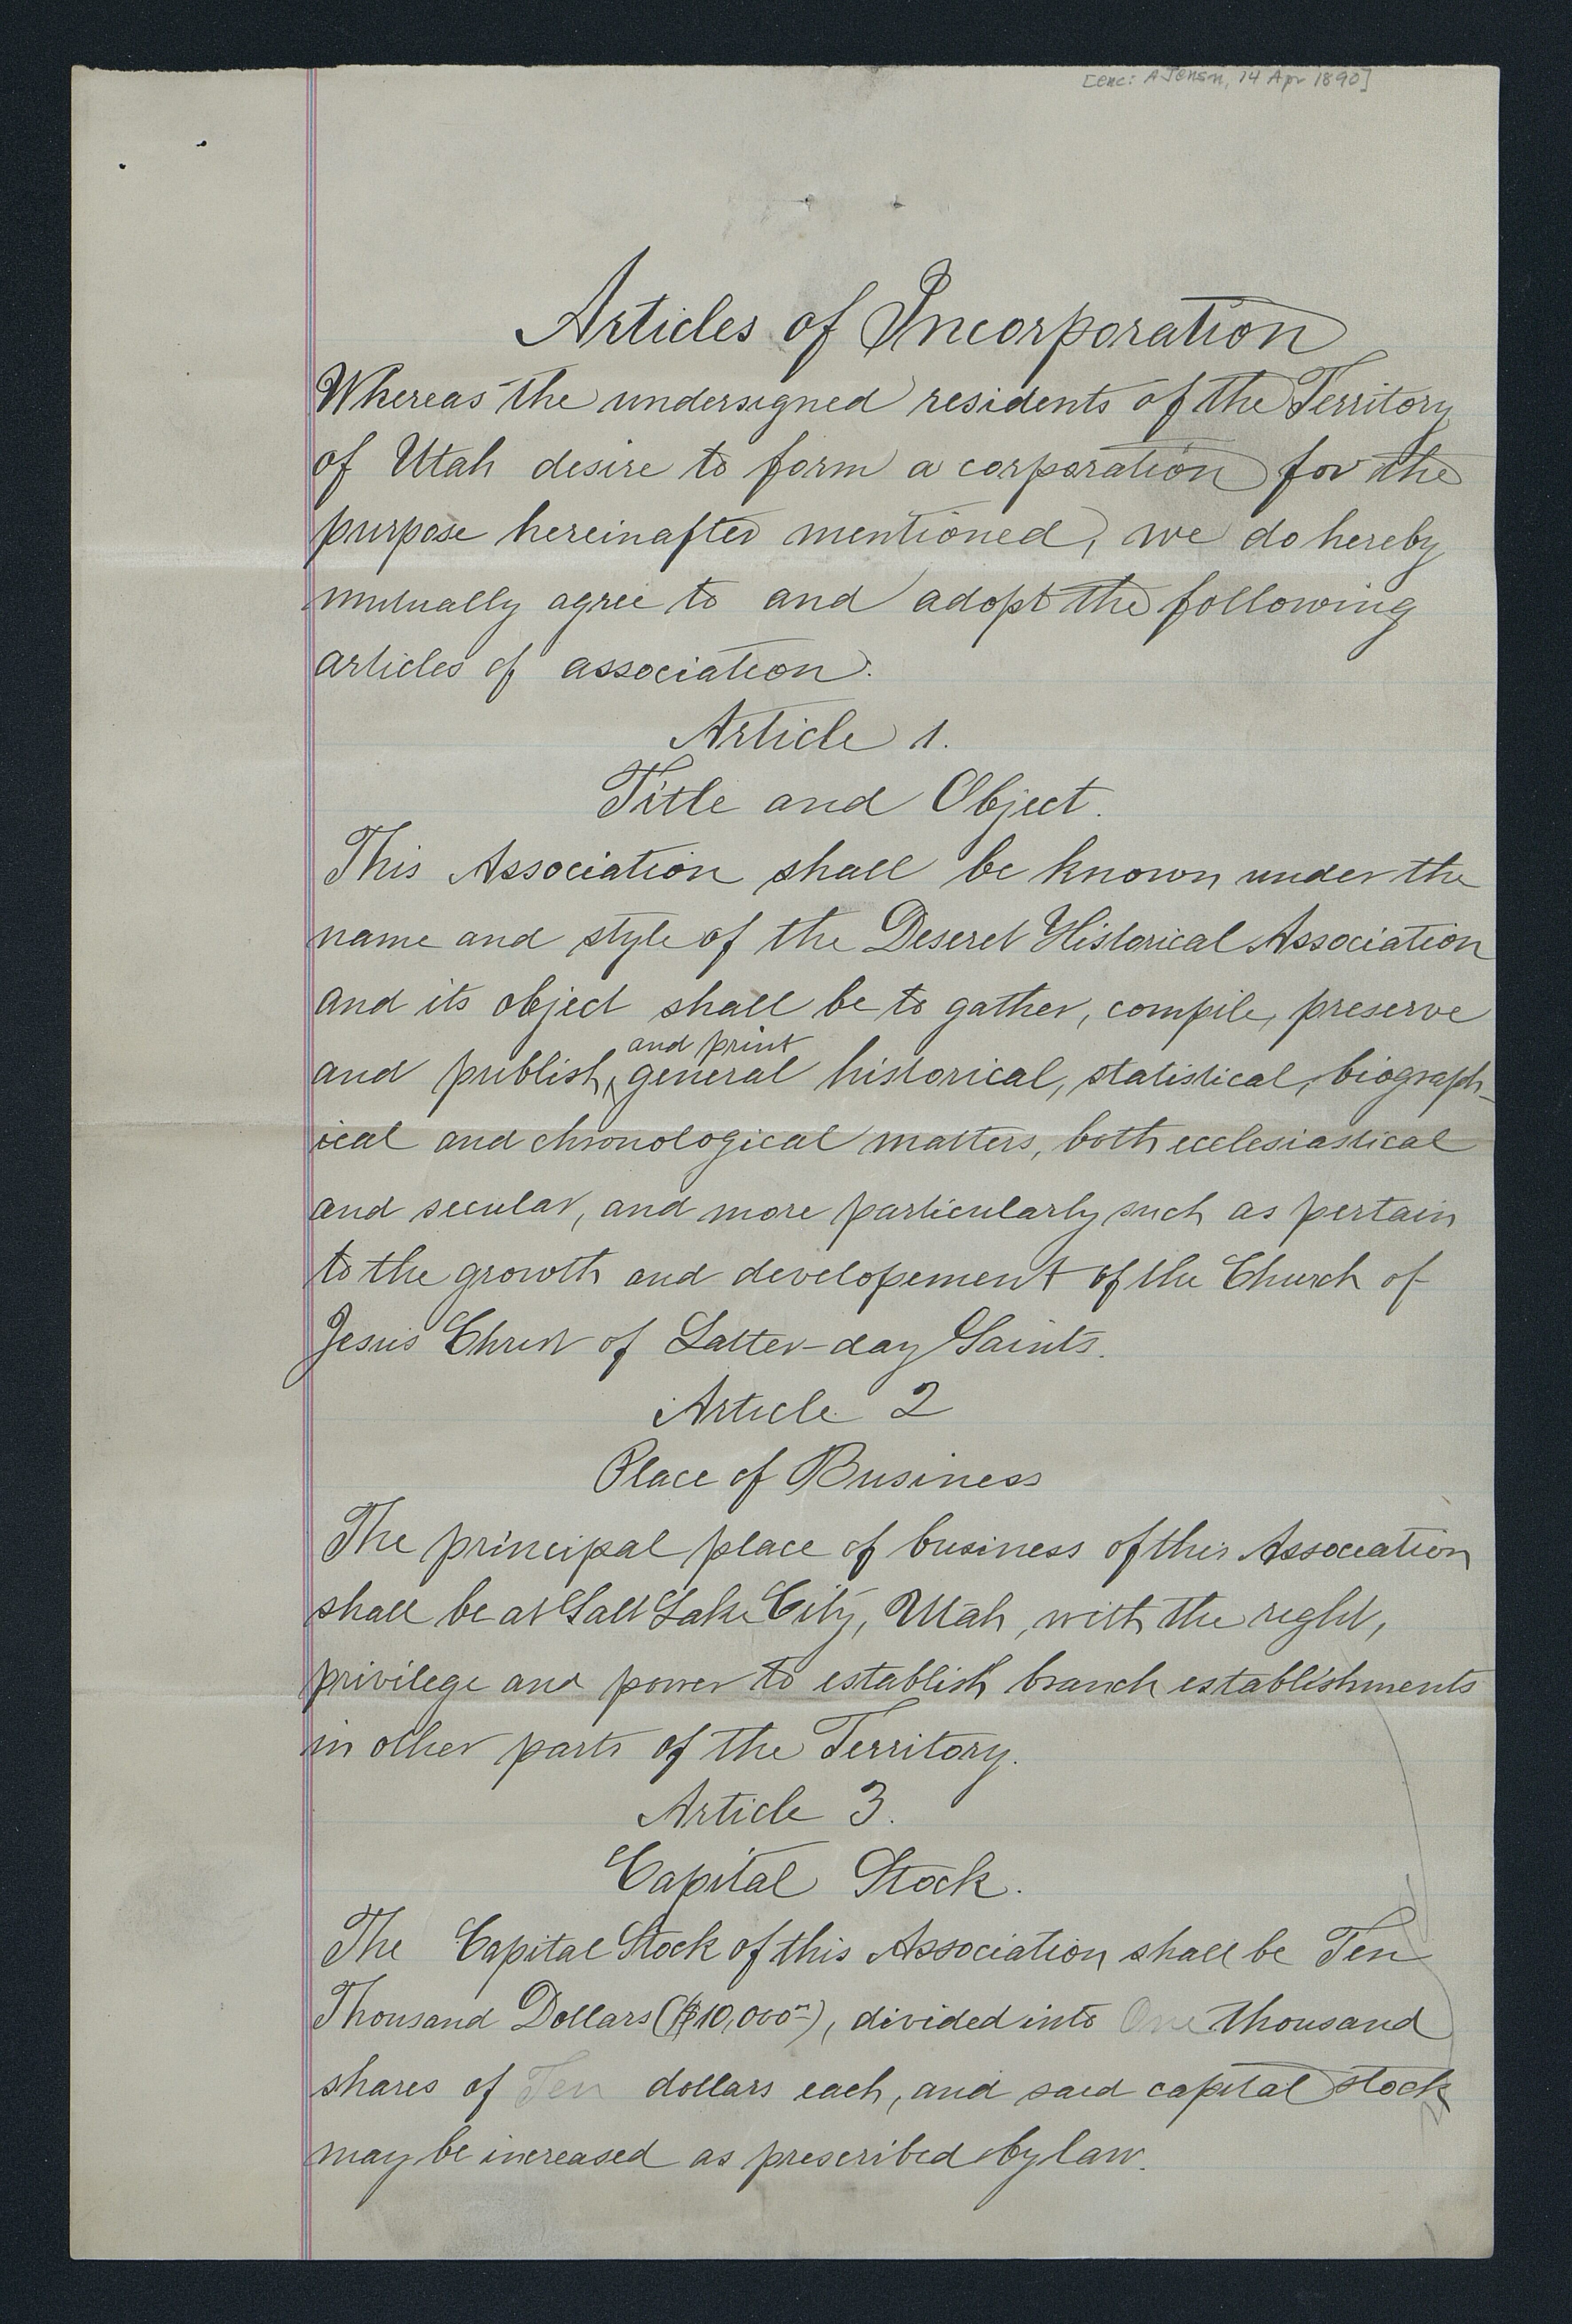 [enc: A Jensn, 14 Apr 1890]
Articles of Incorporation
Whereas the undersigned residents of the Territory
of Utah desire to form a corporation for the
purpose hereinafter mentioned, we do hereby
mutually agree to and adopt the following
articles of association:
Article 1.
Title and Object.
This Association shall be known under the
name and style of the Deseret Historical Association
and its object shall be to gather, compile, preserve
and print
and publish, general historical, statistical, biograph-
ical and chronological matters, both ecclesiastical
and secular, and more particularly such as pertain
to the growth and developement of the Church of
Jesus Christ of Latter-day Saints.
Article 2
Place of Business
The principal place of business of this Association
shall be at Salt Lake City, Utah, with the right,
privilege and power to establish branch establishments
in other parts of the Territory.
Article 3.
Capital Stock.
The Capital Stock of this Association shall be Ten
Thousand Dollars ($10,000), divided into One thousand
shares of Ten dollars each, and said capital stock
may be increased as prescribed by law.